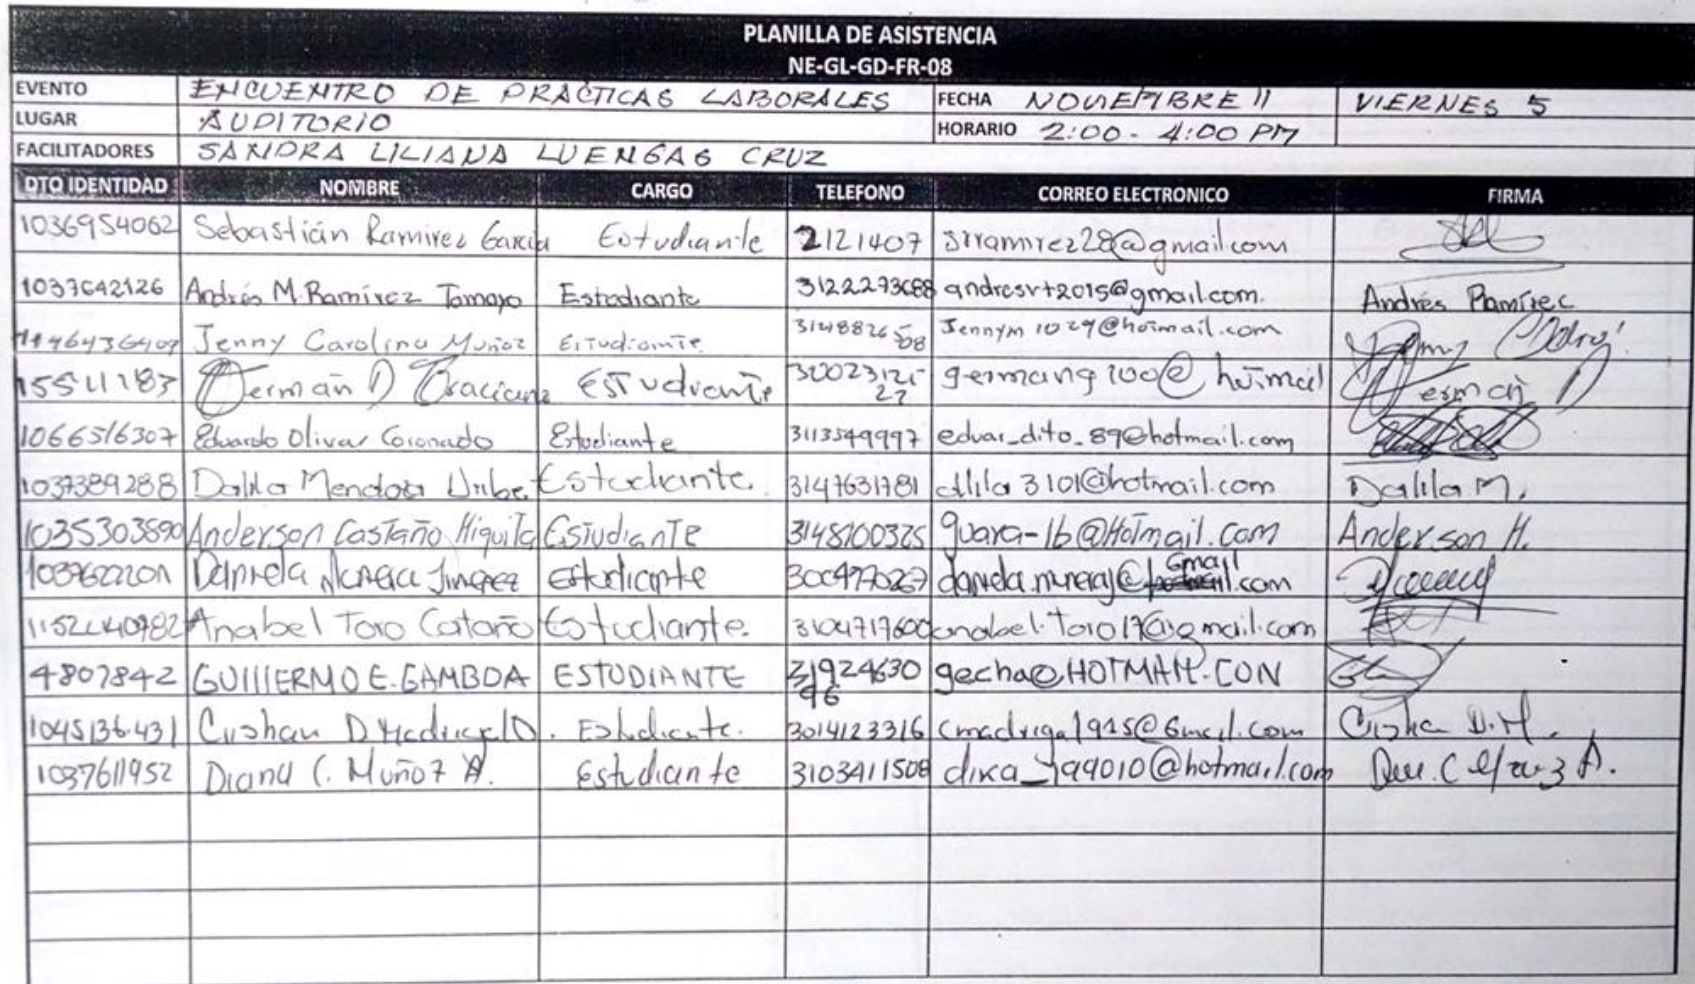 PLANILLA DE ASISTENCIA
NE-GL-GD-FR-08
EVENTO ENCUENTRO DE PRÁCTICAS LABORALES FECHA NOVIEMBRE 11 VIERNES 5
LUGAR AUDITORIO HORARIO 2:00 - 4:00 PM
FACILITADORES SANDRA LILIANA LUENGAS CRUZ
DTO IDENTIDAD NOMBRE CARGO TELEFONO CORREO ELECTRONICO FIRMA
1036954062 Sebastián Ramirez Garcia Estudiante 2121407 srramirez28@gmail.com
1037642126 Andrés M. Ramírez Tamayo Estudiante 3122273688 andresrt2015@gmail.com. Andrés Ramírez
Jenny Carolina Muñoz Estudiante 3148826508 Jennym1029@hotmail.com
15511183 Germán D Graciano Estudiante germang100@hotmail Germán D
1066516307 Eduardo Olivar Coronado Estudiante 3113549997 eduar_dito_89@hotmail.com
1037389288 Dalila Mendoza Uribe Estudiante 3147631781 dlila3101@hotmail.com Dalila M.
1035303590 Anderson Castaño Higuita Estudiante 3148700325 guara-16@Hotmail.com Anderson H.
Daniela Estudiante Gmail .com
Anabel Toro Cataño Estudiante. 3104717600 anabel.toro17@gmail.com
4807842 GUILLERMO E. GAMBOA ESTUDIANTE 3192463096 gecha@HOTMAIL.CON
1045136431 Estudiante. 3014123316 cmadrigal915@Gmail.com
1037611952 Diana C. Muñoz A. Estudiante 3103411508 dika_199010@hotmail.com